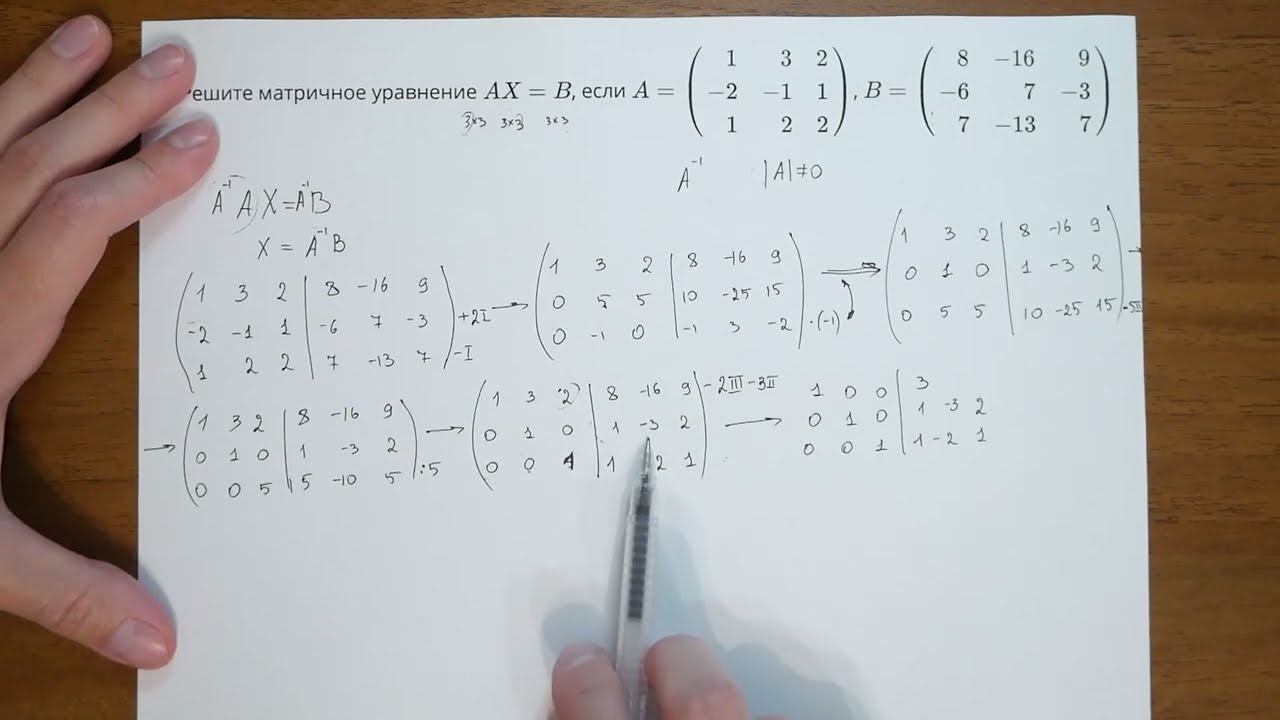 ешите матричное уравнение AX = B, если A = ( 1 3 2 ; −2 −1 1 ; 1 2 2 ), B = ( 8 −16 9 ; −6 7 −3 ; 7 −13 7 )
3×3 3×3 3×3
A⁻¹ |A|≠0
A⁻¹A X = A⁻¹B
X = A⁻¹B
( 1 3 2 | 8 -16 9 )
( -2 -1 1 | -6 7 -3 ) +2I
( 1 2 2 | 7 -13 7 ) -I
→ ( 1 3 2 | 8 -16 9 )
( 0 5 5 | 10 -25 15 )
( 0 -1 0 | -1 3 -2 ) ·(-1)
⇒ ( 1 3 2 | 8 -16 9 ) →
( 0 1 0 | 1 -3 2 )
( 0 5 5 | 10 -25 15 ) -5II
→ ( 1 3 2 | 8 -16 9 )
( 0 1 0 | 1 -3 2 )
( 0 0 5 | 5 -10 5 ) :5
→ ( 1 3 2 | 8 -16 9 ) -2III -3II
( 0 1 0 | 1 -3 2 )
( 0 0 1 | 1 2 1 )
→ 1 0 0 | 3
0 1 0 | 1 -3 2
0 0 1 | 1 -2 1